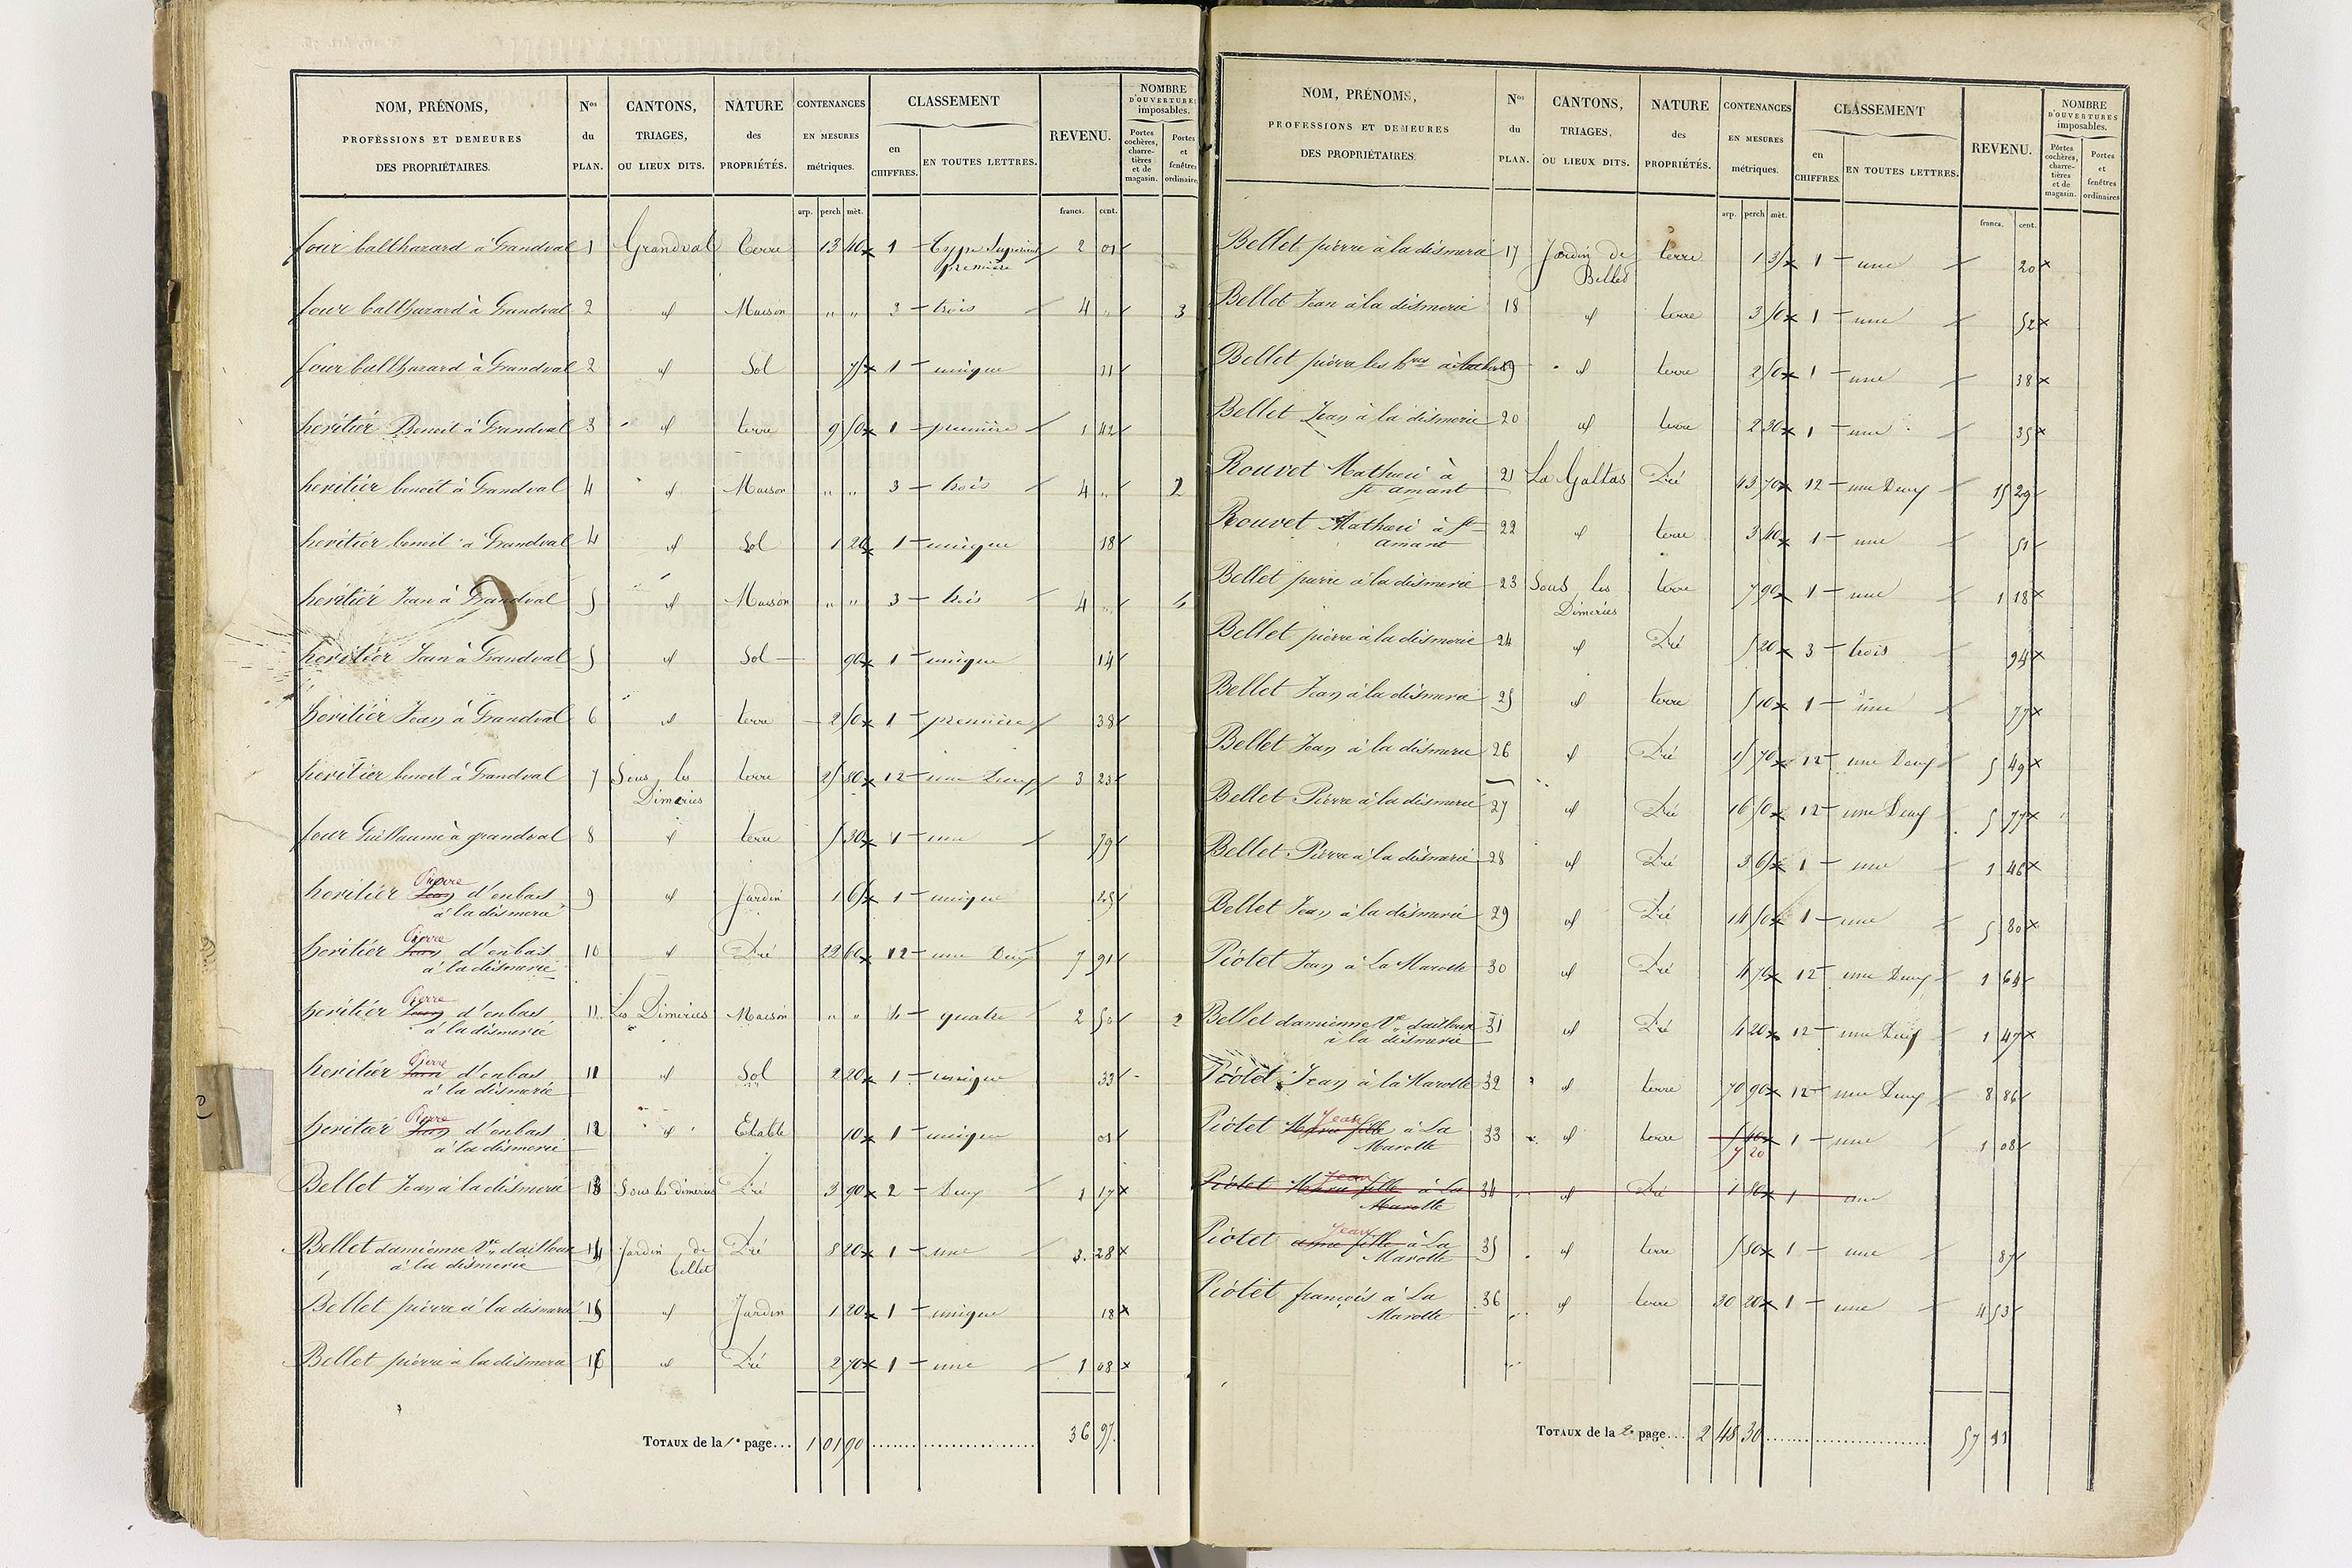 NOM, PRÉNOMS, PROFESSIONS ET DEMEURES DES PROPRIÉTAIRES. Nos du PLAN. CANTONS, TRIAGES, OU LIEUX DITS. NATURE des PROPRIÉTÉS. CONTENANCES EN MESURES métriques. CLASSEMENT en CHIFFRES. EN TOUTES LETTRES. REVENU. NOMBRE D'OUVERTURES imposables. Portes cochères, charretières et de magasin. Portes et fenêtres ordinaires
arp. perch mèt. francs. cent.
four balthazard à Grandval 1 Grandval terre 13 40 1 première 2 01
four balthazard à Grandval 2 id Maison " " 3 trois 4 " 3
four balthazard à Grandval 2 id Sol 75 1 unique 11
heritiér Benoit à Grandval 3 id terre 9 50 1 première 1 42
heritiér benoit à Grandval 4 id Maison " " 3 trois 4 " 2
heritiér benoit à Grandval 4 id Sol 1 20 1 unique 18
heritiér Jean à Grandval 5 id Maison " " 3 trois 4 " 4
heritiér Jean à Grandval 5 id Sol 90 1 unique 14
heritiér Jean à Grandval 6 id terre 2 50 1 première 38
heritiér benoit à Grandval 7 Sous les Dimeries terre 25 80 12 une Deux 3 23
four Guilhaume à grandval 8 id terre 5 30 1 une 79
heritiér Jean Pierre d'enbas à la dismerie 9 id Jardin 1 65 1 unique 25
heritiér Jean Pierre d'enbas à la dismerie 10 id Pré 22 60 12 une Deux 7 91
heritiér Jean Pierre d'enbas à la dismerie 11 Les Dimeries Maison " " 4 quatre 2 50 2
heritiér Jean Pierre d'enbas à la dismerie 11 id Sol 2 20 1 unique 33
heritiér Jean Pierre d'enbas à la dismerie 12 id Etable 10 1 unique 01
Bellet Jean à la dismerie 13 Sous les dimeries Pré 3 90 2 Deux 1 17
Bellet damienne Ve dailloux à la dismerie 14 Jardin de bellet Pré 8 20 1 une 3 28
Bellet pierre à la dismerie 15 id Jardin 1 20 1 unique 18
Bellet pierre à la dismerie 16 id Pré 2 70 1 une 1 08
TOTAUX de la 1e page... 1 01 90 36 97
NOM, PRÉNOMS, PROFESSIONS ET DEMEURES DES PROPRIÉTAIRES. Nos du PLAN. CANTONS, TRIAGES, OU LIEUX DITS. NATURE des PROPRIÉTÉS. CONTENANCES EN MESURES métriques. CLASSEMENT en CHIFFRES. EN TOUTES LETTRES. REVENU. NOMBRE D'OUVERTURES imposables. Portes cochères, charretières et de magasin. Portes et fenêtres ordinaires
arp. perch mèt. francs. cent.
Bellet pierre à la dismerie 17 Jardin de Bellet terre 1 35 1 une 20
Bellet Jean à la dismerie 18 id terre 3 50 1 une 52
Bellet pierre les 19 id terre 2 50 1 une 38
Bellet Jean à la dismerie 20 id terre 2 30 1 une 35
Rouvet Mathieu à St amant 21 La Galtas Pré 43 70 12 une Deux 15 29
Rouvet Mathieu à St amant 22 id terre 3 40 1 une 51
Bellet pierre à la dismerie 23 Sous les Dimeries terre 7 90 1 une 1 18
Bellet pierre à la dismerie 24 id Pré 5 20 3 trois 94
Bellet Jean à la dismerie 25 id terre 5 10 1 une 77
Bellet Jean à la dismerie 26 id Pré 15 70 12 une Deux 5 49
Bellet Pierre à la dismerie 27 id Pré 16 50 12 une Deux 5 77
Bellet Pierre à la dismerie 28 id Pré 3 65 1 une 1 46
Bellet Jean à la dismerie 29 id Pré 14 50 1 une 5 80
Piotet Jean à La Marotte 30 id Pré 4 70 12 une Deux 1 64
Bellet damienne Ve dailloux à la dismerie 31 id Pré 4 20 12 une Deux 1 47
Piotet Jean à la Marotte 32 id terre 70 90 12 une Deux 8 86
Piotet Marie fille Jean à La Marotte 33 id terre 7 20 1 une 1 08
Piotet Marie fille Jean à La Marotte 34 id Pré 1 80 1 une
Piotet anne fille Jean à La Marotte 35 id terre 5 80 1 une 87
Piotet françois à La Marotte 36 id terre 30 20 1 une 4 53
TOTAUX de la 2e page... 2 48 30 57